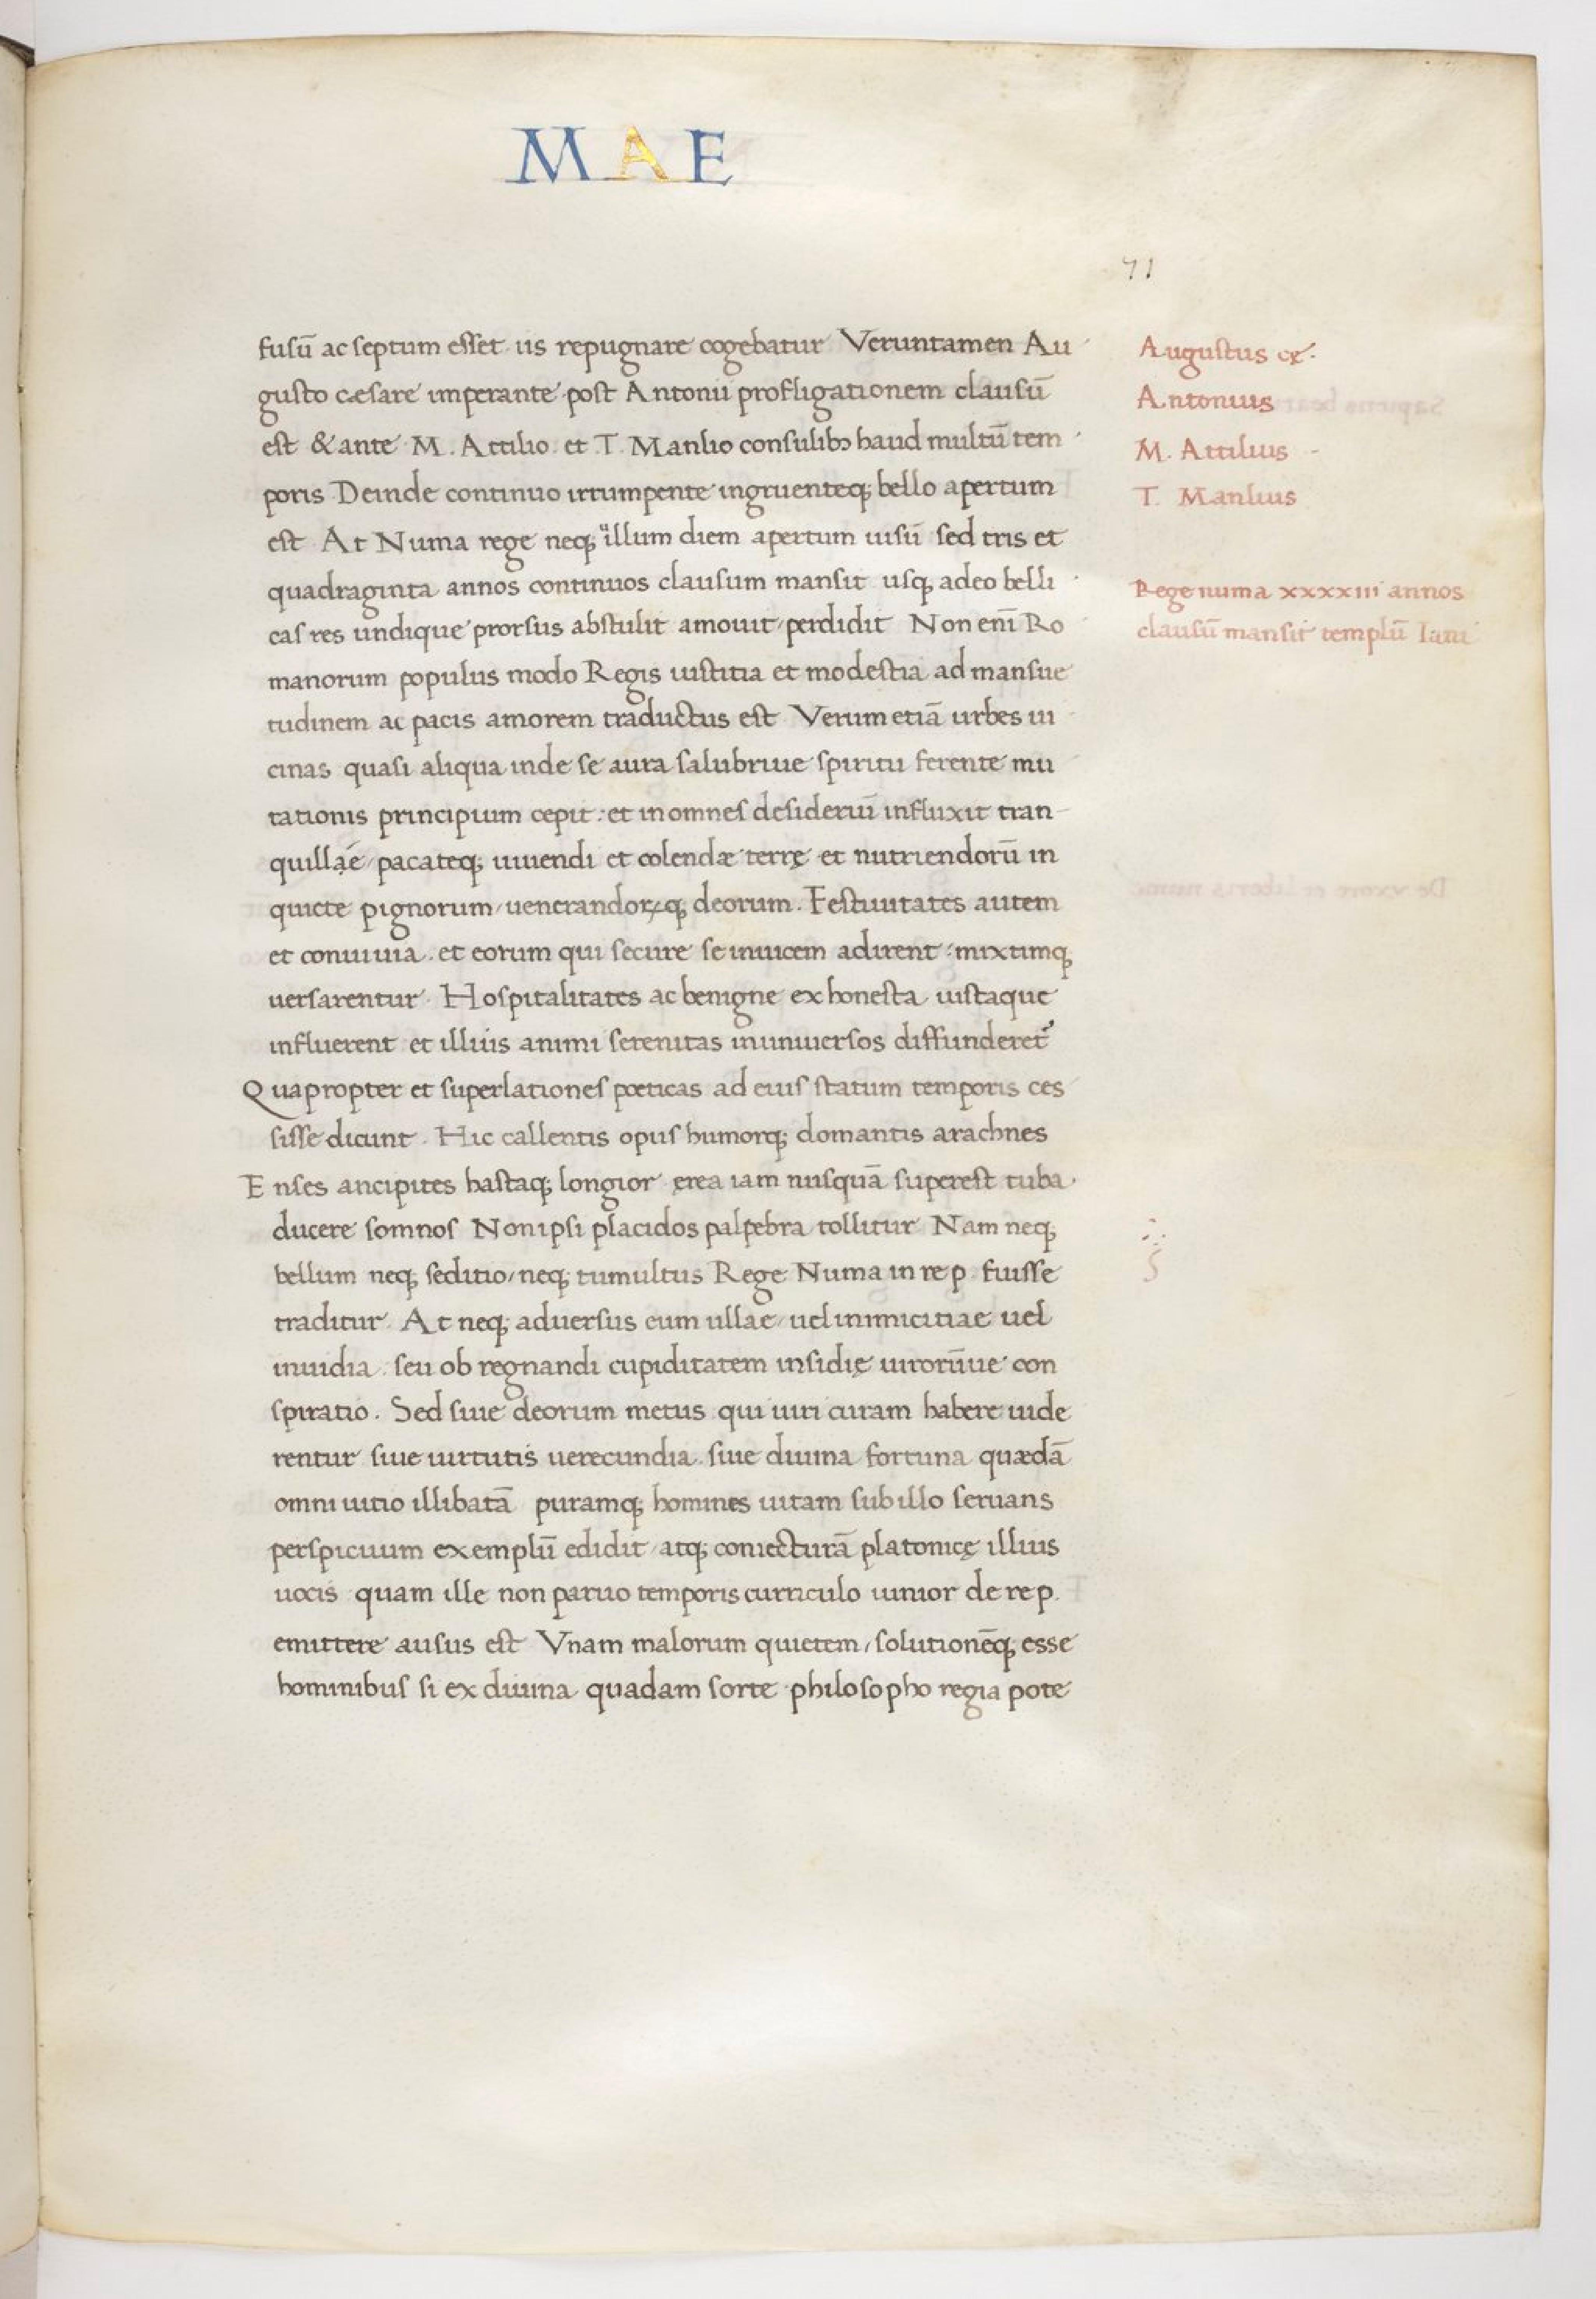 MAE
71
fusū ac septum esset iis repugnare cogebatur Veruntamen Au
gusto cæsare imperante post Antonii profligationem clausū
est & ante M. Attilio et T. Manlio consulibꝫ haud multū tem
poris Deinde continuo irrumpente ingruenteqꝫ bello apertum
est At Numa rege neqꝫ illum diem apertum uisū sed tris et
quadraginta annos continuos clausum mansit usqꝫ adeo belli
cas res undique prorsus abstulit amouit/perdidit Non enī Ro
manorum populus modo Regis iustitia et modestia ad mansue
tudinem ac pacis amorem traductus est Verum etiā urbes ui
cinas quasi aliqua inde se aura salubriue spiritu ferente mu
tationis principium cepit: et in omnes desideriū influxit tran-
quillæ/pacateqꝫ uiuendi et colendæ terrę et nutriendorū in
quiete pignorum/uenerandorꝝqꝫ deorum. Festiuitates autem
et conuiuia. et eorum qui secure se inuicem adirent: mixtimqꝫ
uersarentur. Hospitalitates ac benigne ex honesta iustaque
influerent et illius animi serenitas in uniuersos diffunderet᷑
Quapropter et superlationes poeticas ad eius statum temporis ces
sisse dicunt. Hic callentis opus humorqꝫ domantis arachnes
Enses ancipites hastaqꝫ longior ęrea iam nusquā superest tuba.
ducere somnos Non ipsi placidos palpebra tollitur Nam neqꝫ
bellum neqꝫ seditio/neqꝫ tumultus Rege Numa in re p. fuisse
traditur. At neqꝫ aduersus eum ullae/uel inimicitiae uel
inuidia. seu ob regnandi cupiditatem insidię uirorūue con
spiratio. Sed siue deorum metus qui uiri curam habere uide
rentur siue uirtutis uerecundia. siue diuina fortuna quædā
omni uitio illibatā puramqꝫ homines uitam sub illo seruans
perspicuum exemplū edidit/atqꝫ coniecturā platonicę illius
uocis quam ille non paruo temporis curriculo iunior de re p.
emittere ausus est Vnam malorum quietem/solutionēqꝫ esse
hominibus si ex diuina quadam sorte philosopho regia pote
Augustus cę.
Antonius
M. Attilius
T. Manlius
Rege numa xxxxiii annos
clausū mansit templū Iani